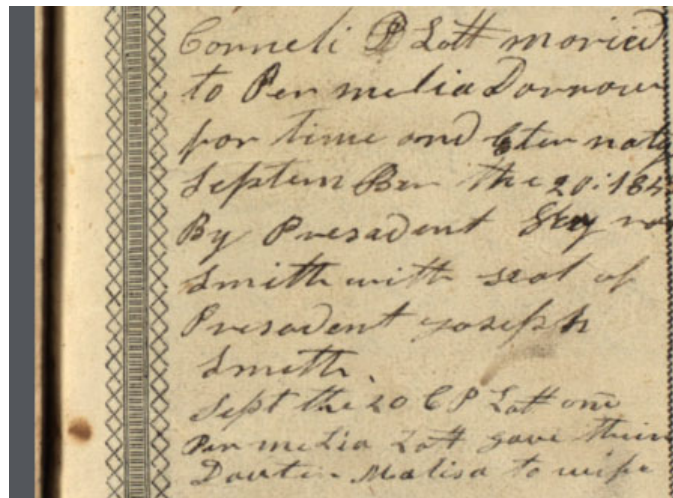 Corneli P Lott moried
to Per melia Dorrow
for time and Eter naty
Septem Ber the 20: 184
By Presadent Hay
Smith with seal of
Presadent Joseph
Smith.
Sept the 20 C P Lott one
Per melia Lott gave thein
Dauter Malisa to wife